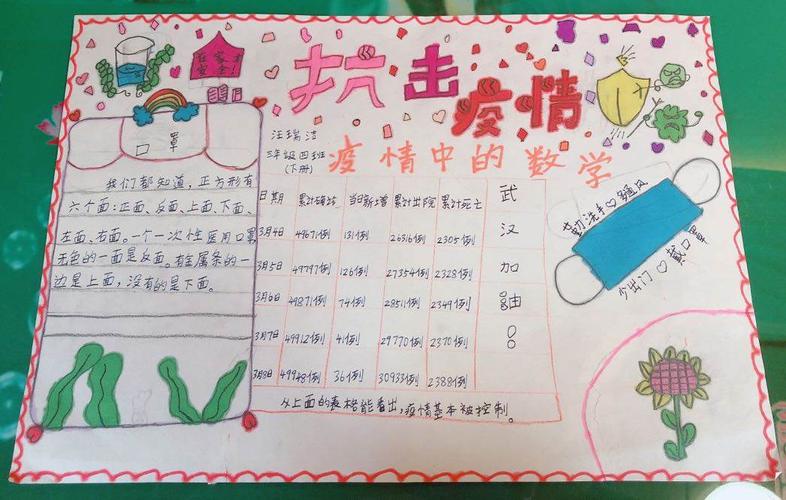 抗击疫情
在家才
安全!
疫情中的数学
汪瑞洁
三年级四班
(下册)
口罩
我们都知道,正方形有
六个面:正面、反面、上面、下面、
左面、右面。一个一次性医用口罩
无色的一面是反面。有金属条的一
边是上面,没有的是下面。
日期 累计确诊 当日新增 累计出院 累计死亡
3月4日 49671例 131例 26316例 2305例
3月5日 49797例 126例 27354例 2328例
3月6日 49871例 74例 28511例 2349例
3月7日 49912例 41例 29770例 2370例
3月8日 49948例 36例 30933例 2388例
武
汉
加
油
!
从上面的表格能看出,疫情基本被控制。
勤洗手♡多通风
少出门♡戴口罩